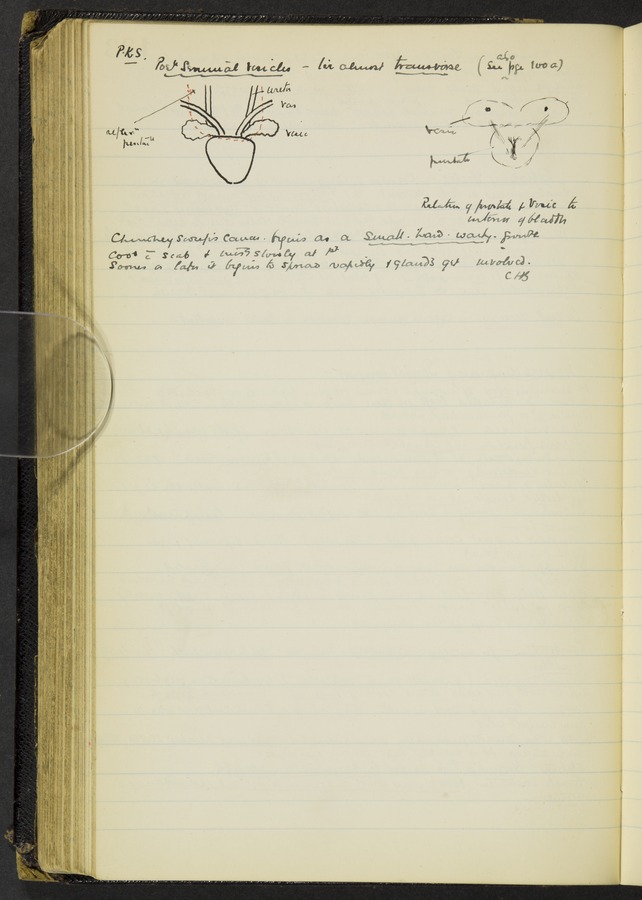 P.K.S.
Post Seminal Vesicles - lie almost transverse (See also pge 100a)
ureter
vas
vesic
reflexn
peritm
vesic
prostate
Relation of prostate & Vesic to
interior of bladder
Chimney Sweep's Cancer. begins as a Small. hard. warty. growth
c̄ scab & slowly at 1st
Sooner or later it begins to spread rapidly & glands get involved.